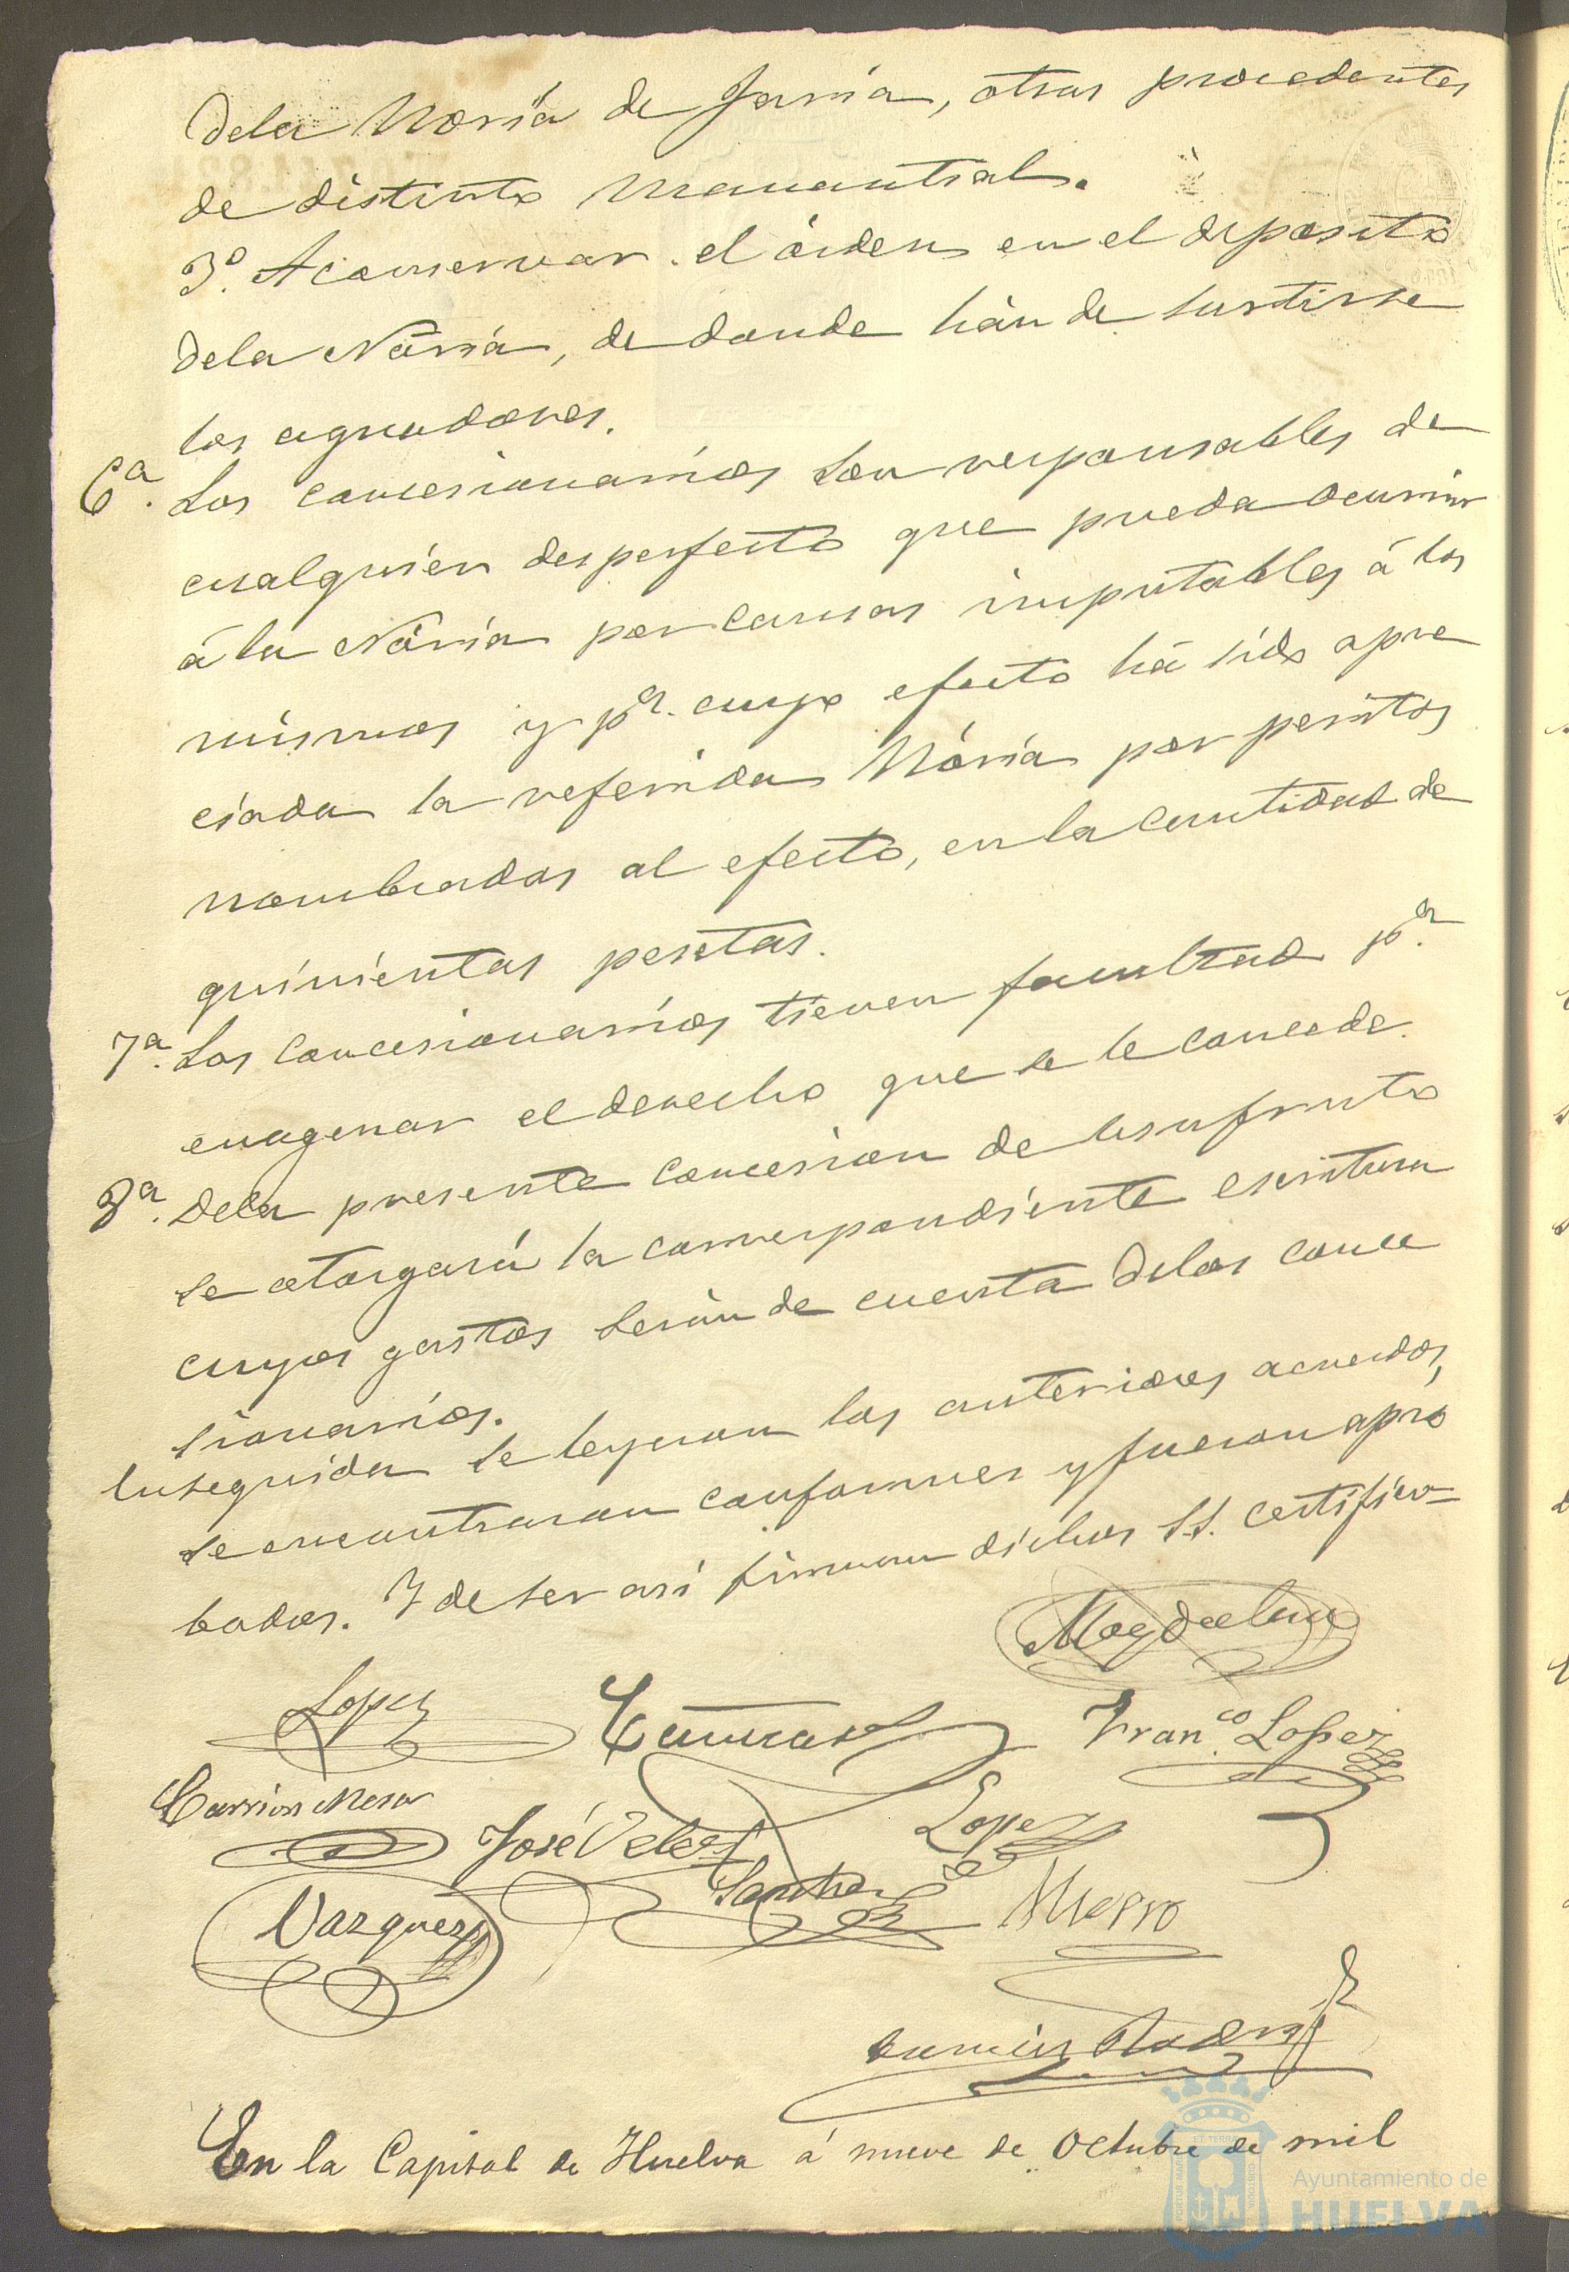 dela Noria de Jamia, otras procedentes
de distinto manantial.
3º. A conservar el órden en el deposito
dela Nória, de donde hán de surtirse
los aguadores.
6ª. Los concesionarios son responsables de
cualquier desperfecto que pueda ocurrir
á la Nória por causas imputables á los
mismos y pª. cuyo efecto há sido apre
ciada la referida Nória por peritos
nombrados al efecto, en la cantidad de
quinientas pesetas.
7ª. Los concesionarios tienen facultad pª.
enagenar el derecho que se le concede.
8ª. Dela presente concesion de usufructo
se otorgará la correspondiente escritura
cuyos gastos serán de cuenta delos conce
sionarios.
Enseguida se leyeron los anteriores acuerdos,
se encontraron conformes y fueron apro
bados. Y de ser así firman dichos S.S. certifico=
Magdalena
Lopez
Franco. Lopez
Carrion Mesa
José Velez
Lopez
Sanchez
Vazquez
En la Capital de Huelva á nueve de Octubre de mil
Ayuntamiento de
HUELVA